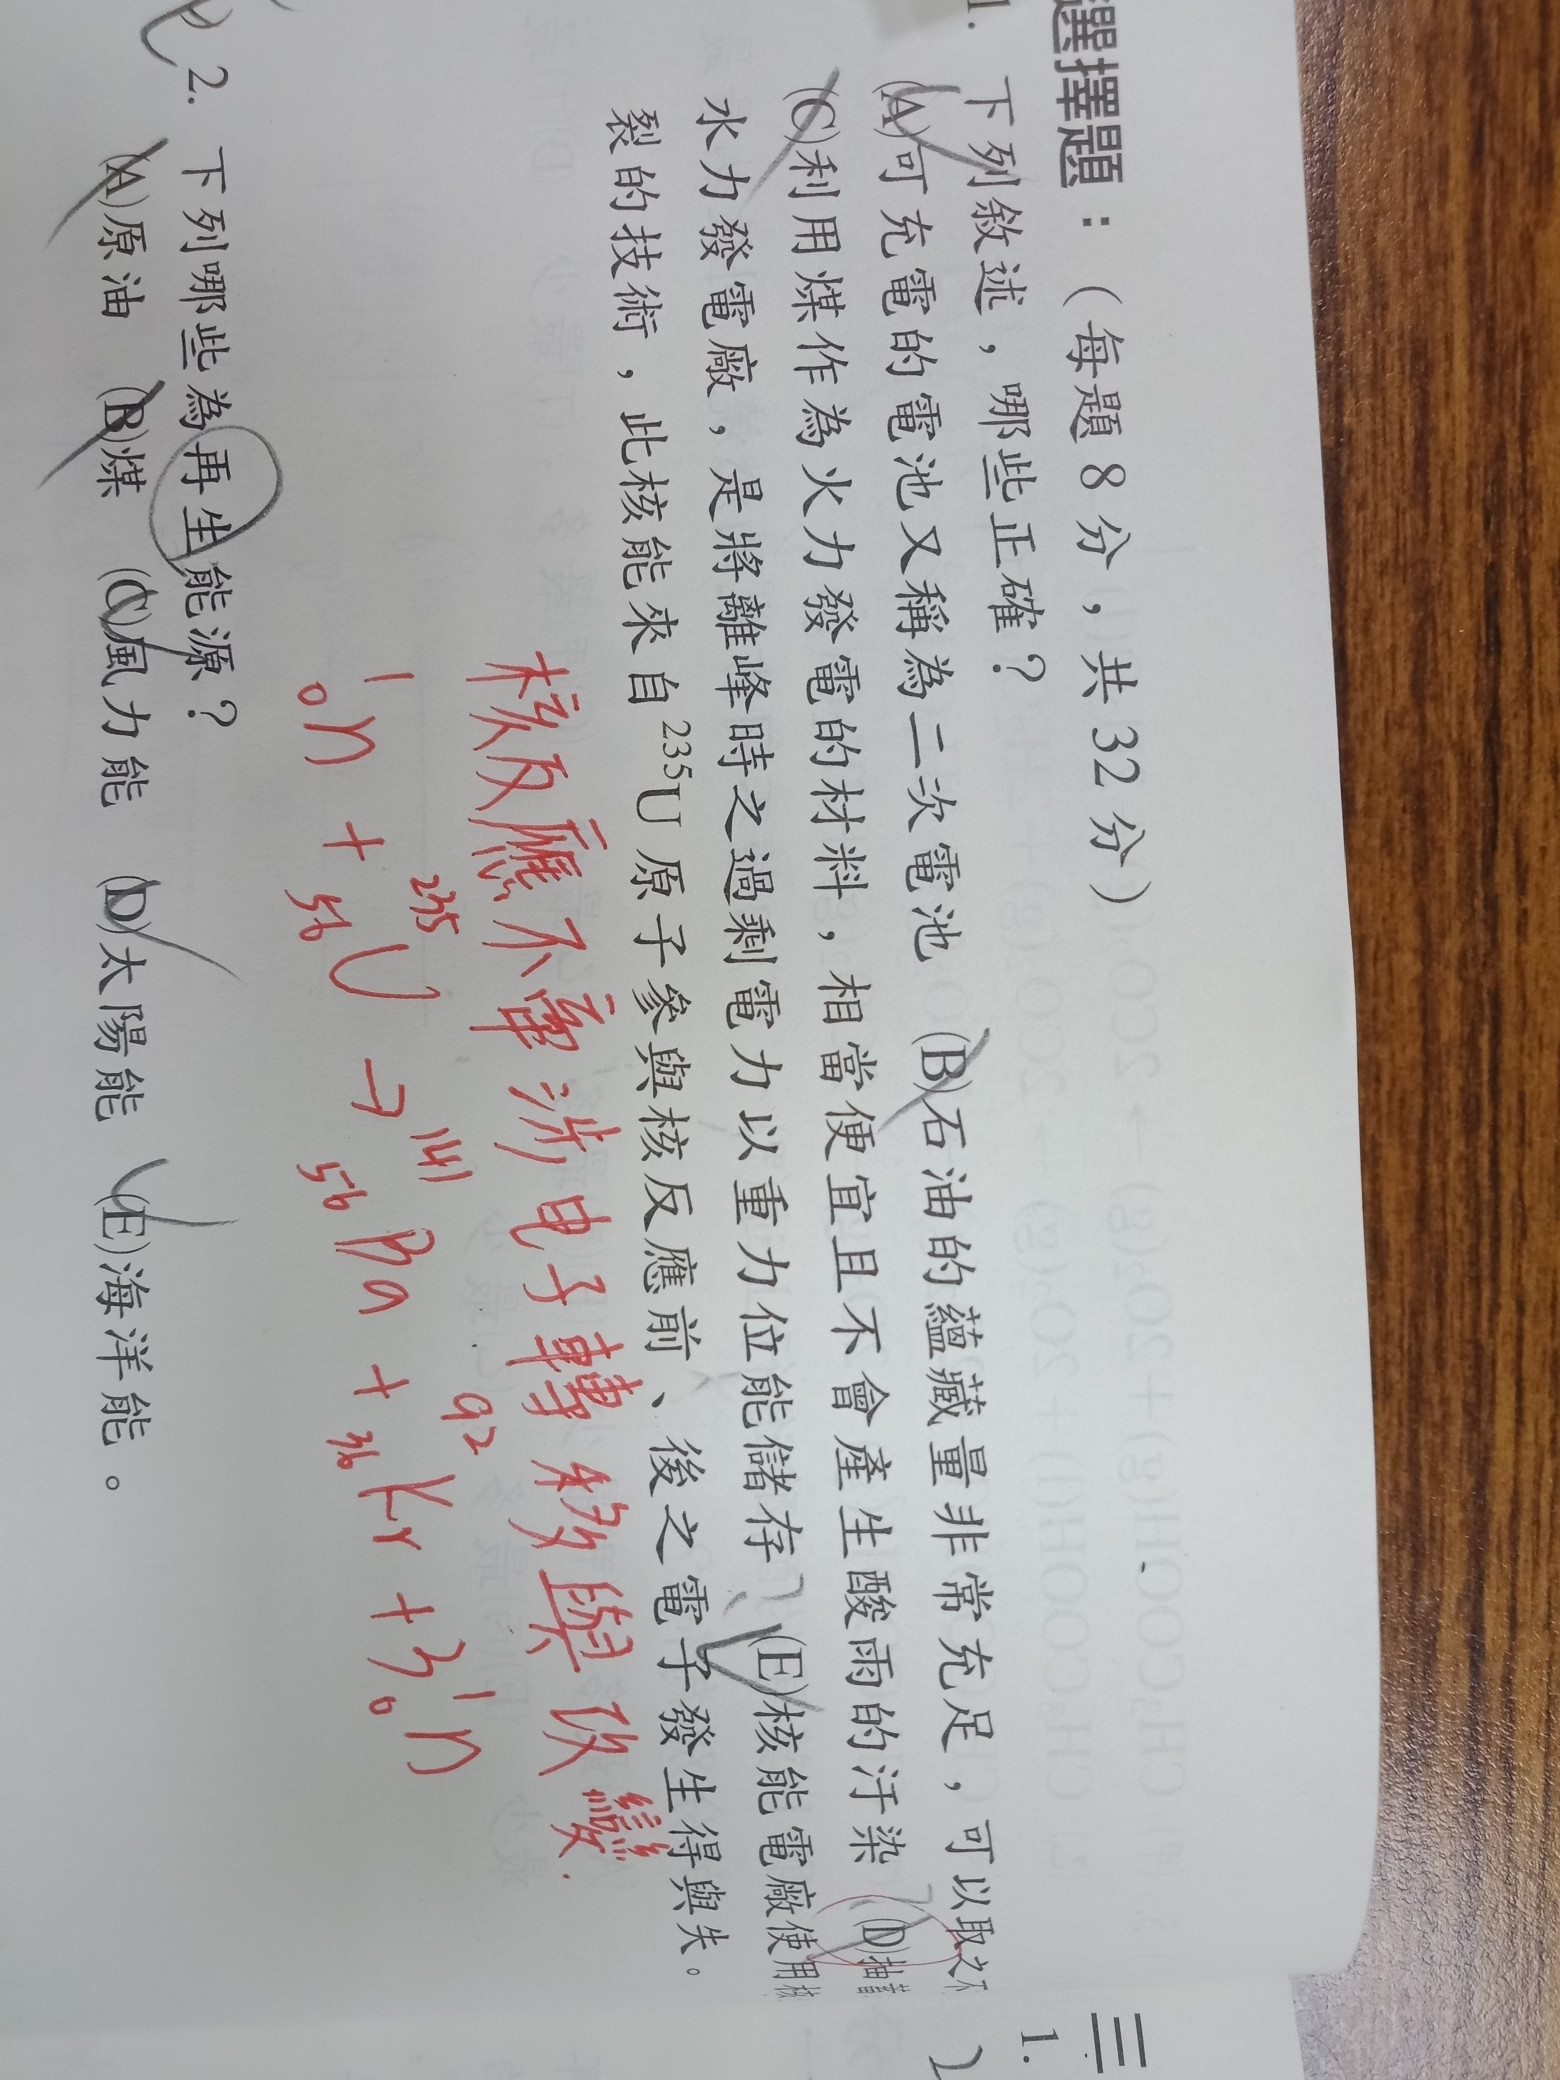 選擇題：（每題8分，共32分）
1. 下列敘述，哪些正確？
(A)可充電的電池又稱為二次電池 (B)石油的蘊藏量非常充足，可以取之不
(C)利用煤作為火力發電的材料，相當便宜且不會產生酸雨的汙染 (D)抽蓄
水力發電廠，是將離峰時之過剩電力以重力位能儲存 (E)核能電廠使用核
裂的技術，此核能來自²³⁵U原子參與核反應前、後之電子發生得與失。
核反應不牽涉电子轉移與改變.
¹₀n + ²³⁵₅₆U → ¹⁴¹₅₆Ba + ⁹²₃₆Kr + 3¹₀n
2. 下列哪些為再生能源？
(A)原油 (B)煤 (C)風力能 (D)太陽能 (E)海洋能。
三
1.